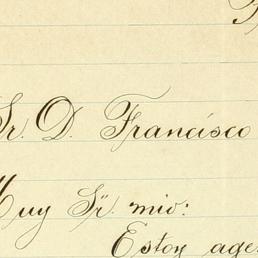 Sr. D. Francisco
Muy Sr. mio:
Estoy